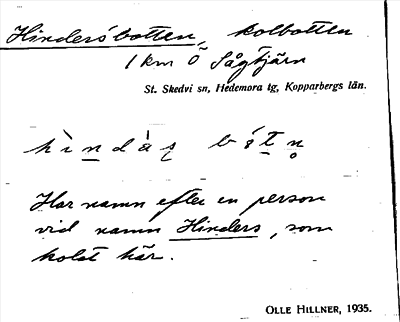 Hinders'botten, kolbotten
1 km Ö Sågtjärn
St. Skedvi sn, Hedemora tg, Kopparbergs län.
hìndàṣ bó̜tn̥
Har namn efter en person
vid namn Hinders, som
kolat här.
OLLE HILLNER, 1935.